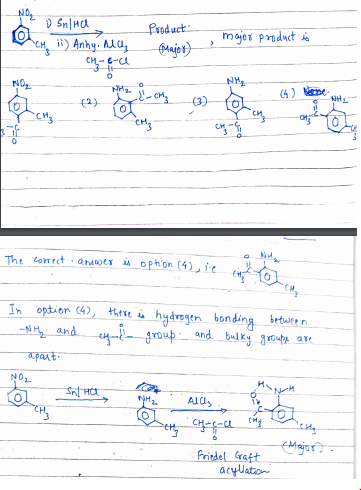 NO₂
i) Sn/HCl
ii) Anhy. AlCl₃
CH₃-C-Cl
O
CH₃
Product
(Major)
, major product is
NO₂
CH₃
-C
O
(2) NH₂
O
C-CH₃
CH₃
(3) NH₂
CH₃
CH₃-C
O
(4)
O
CH₃-C
NH₂
CH₃
The correct answer is option (4), i.e
O
CH₃-C
NH₂
CH₃
In option (4), there is hydrogen bonding between
-NH₂ and CH₃-C- group and bulky groups are
O
apart.
NO₂
CH₃
Sn/HCl
NH₂
CH₃
AlCl₃
CH₃-C-Cl
O
H
N-H
O
C
CH₃
CH₃
(Major).
Friedel Craft
acyllation